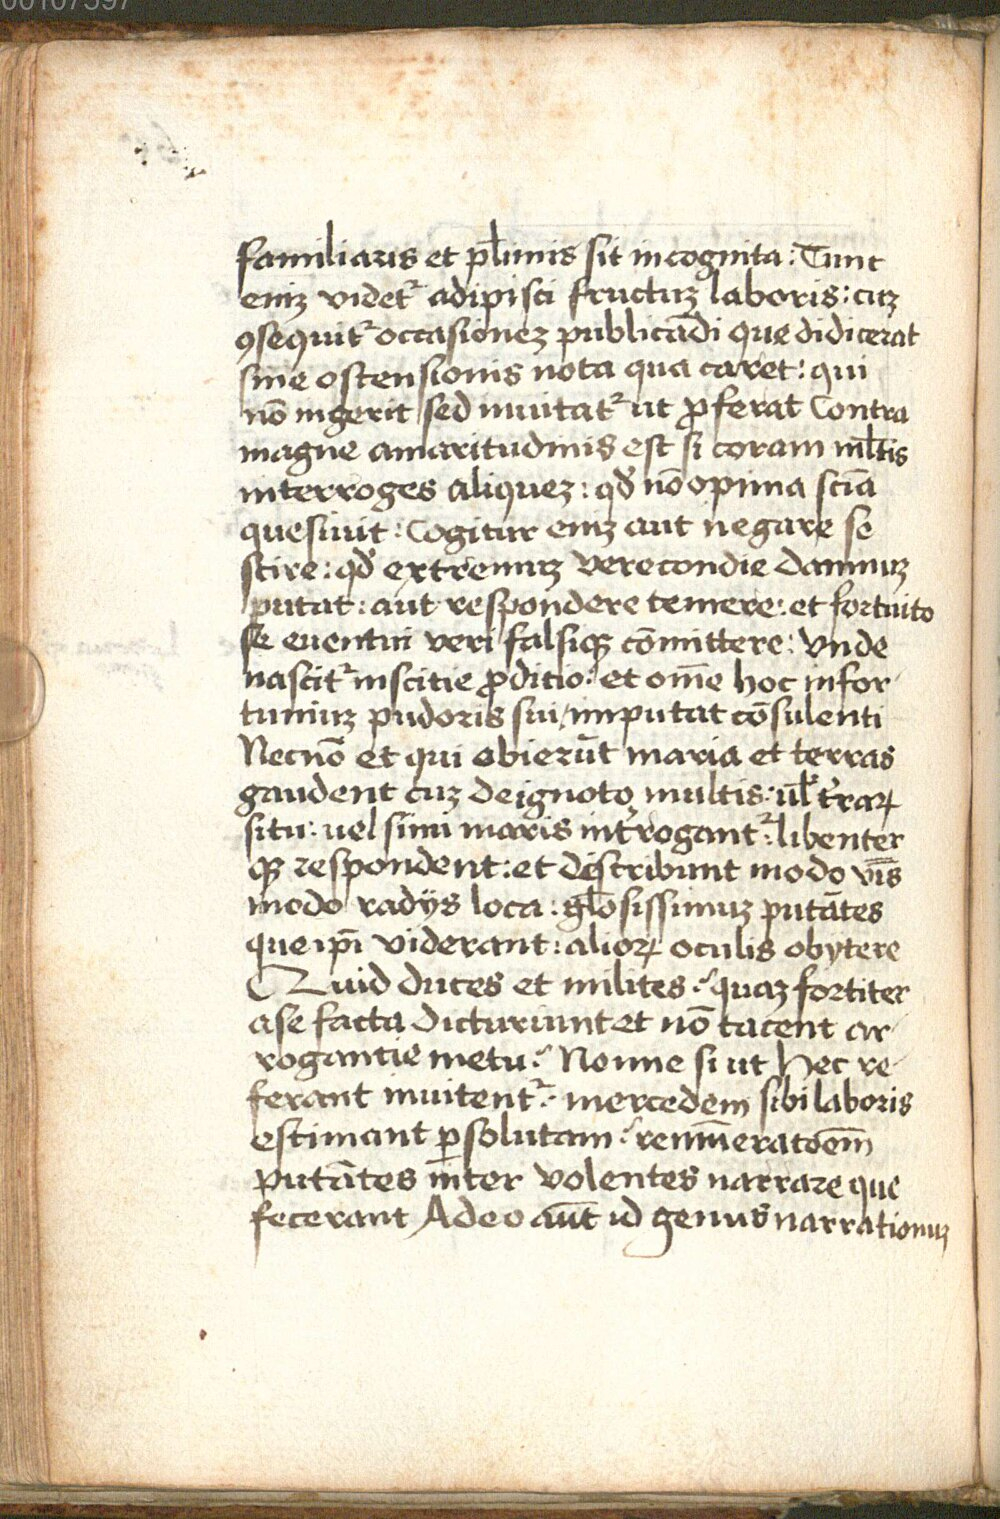 00107597
familiaris et pl̅imis sit incognita: Tunc
eniꝫ videt᷑ adipisci fructuꝫ laboris: cuꝫ
ꝯsequit᷑ occasioneꝫ publicādi que didicerat
sine ostensionis nota qua caret: qui
nō ingerit sed inuitat᷑ ut ꝓferat Contra
magne amaritudinis est si coram ml̅tis
interroges aliqueꝫ: qd̓ nō opima sciā
quesiuit: Cogitur eniꝫ aut negare se
scire: qd̓ extremuꝫ verecondie damnuꝫ
putat: aut respondere temere: et fortuito
se euentui veri falsiqꝫ cōmittere: Vnde
nascit᷑ inscitie ꝓditio: et om̄e hoc infor-
tuniuꝫ pudoris sui imputat cōsulenti
Necnō et qui obierūt maria et terras
gaudent cuꝫ de ignoto multis: ul̓ t̓raꝝ
situ: uel sinu maris int̓rogant᷑: libenter
qꝫ respondent: et describunt modo v̄is
modo radijs loca: gl̅osissimuꝫ putātes
que ip̄i viderant: alioꝝ oculis obijcere
Quid duces et milites? quaꝫ fortiter
a se facta dicturiunt et nō tacent ar-
rogantie metu? Nonne si ut hec re-
ferant inuitent᷑: mercedem sibi laboris
estimant ꝑsolutam? remūeratōem̄
putātes inter volentes narrare que
fecerant Adeo aūt id genus narrationuꝫ